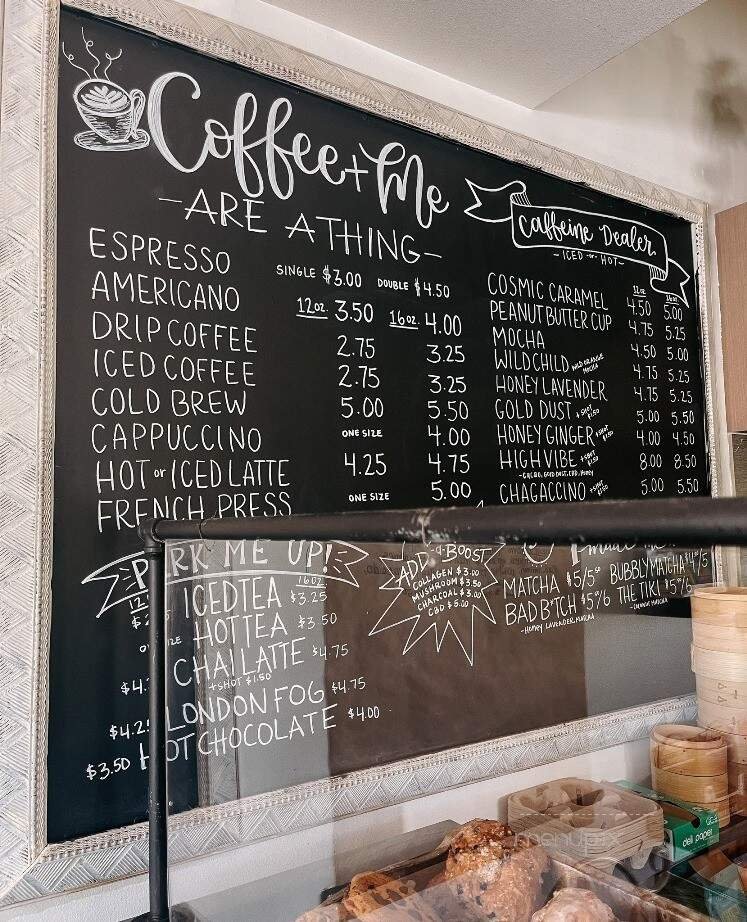 Coffee + Me
- ARE A THING -
ESPRESSO SINGLE $3.00 DOUBLE $4.50
AMERICANO 12oz. 3.50 16oz. 4.00
DRIP COFFEE 2.75 3.25
ICED COFFEE 2.75 3.25
COLD BREW 5.00 5.50
CAPPUCCINO ONE SIZE 4.00
HOT or ICED LATTE 4.25 4.75
FRENCH PRESS ONE SIZE 5.00
Caffeine Dealer
- ICED or HOT -
12oz 16oz
COSMIC CARAMEL 4.50 5.00
PEANUT BUTTER CUP 4.75 5.25
MOCHA 4.50 5.00
WILD CHILD WILD ORANGE MOCHA 4.75 5.25
HONEY LAVENDER 4.75 5.25
GOLD DUST +SHOT $1.50 5.00 5.50
HONEY GINGER +SHOT $1.50 4.00 4.50
HIGH VIBE +SHOT $1.50 8.00 8.50
- CACAO, GOLD DUST, CBD, HONEY
CHAGACCINO +SHOT $1.50 5.00 5.50
PERK ME UP!
16oz
ICED TEA $3.25
HOT TEA $3.50
CHAI LATTE $4.75
+SHOT $1.50
$4.25 LONDON FOG $4.75
$3.50 HOT CHOCOLATE $4.00
ADD-a-BOOST
COLLAGEN $3.00
MUSHROOM $3.50
CHARCOAL $3.00
CBD $5.00
MATCHA $5/5.50 BUBBLY MATCHA $4.75
BAD B*TCH $5.50/6 THE TIKI $5.50/6
- HONEY LAVENDER MATCHA - COCONUT MATCHA
menupix
deli paper